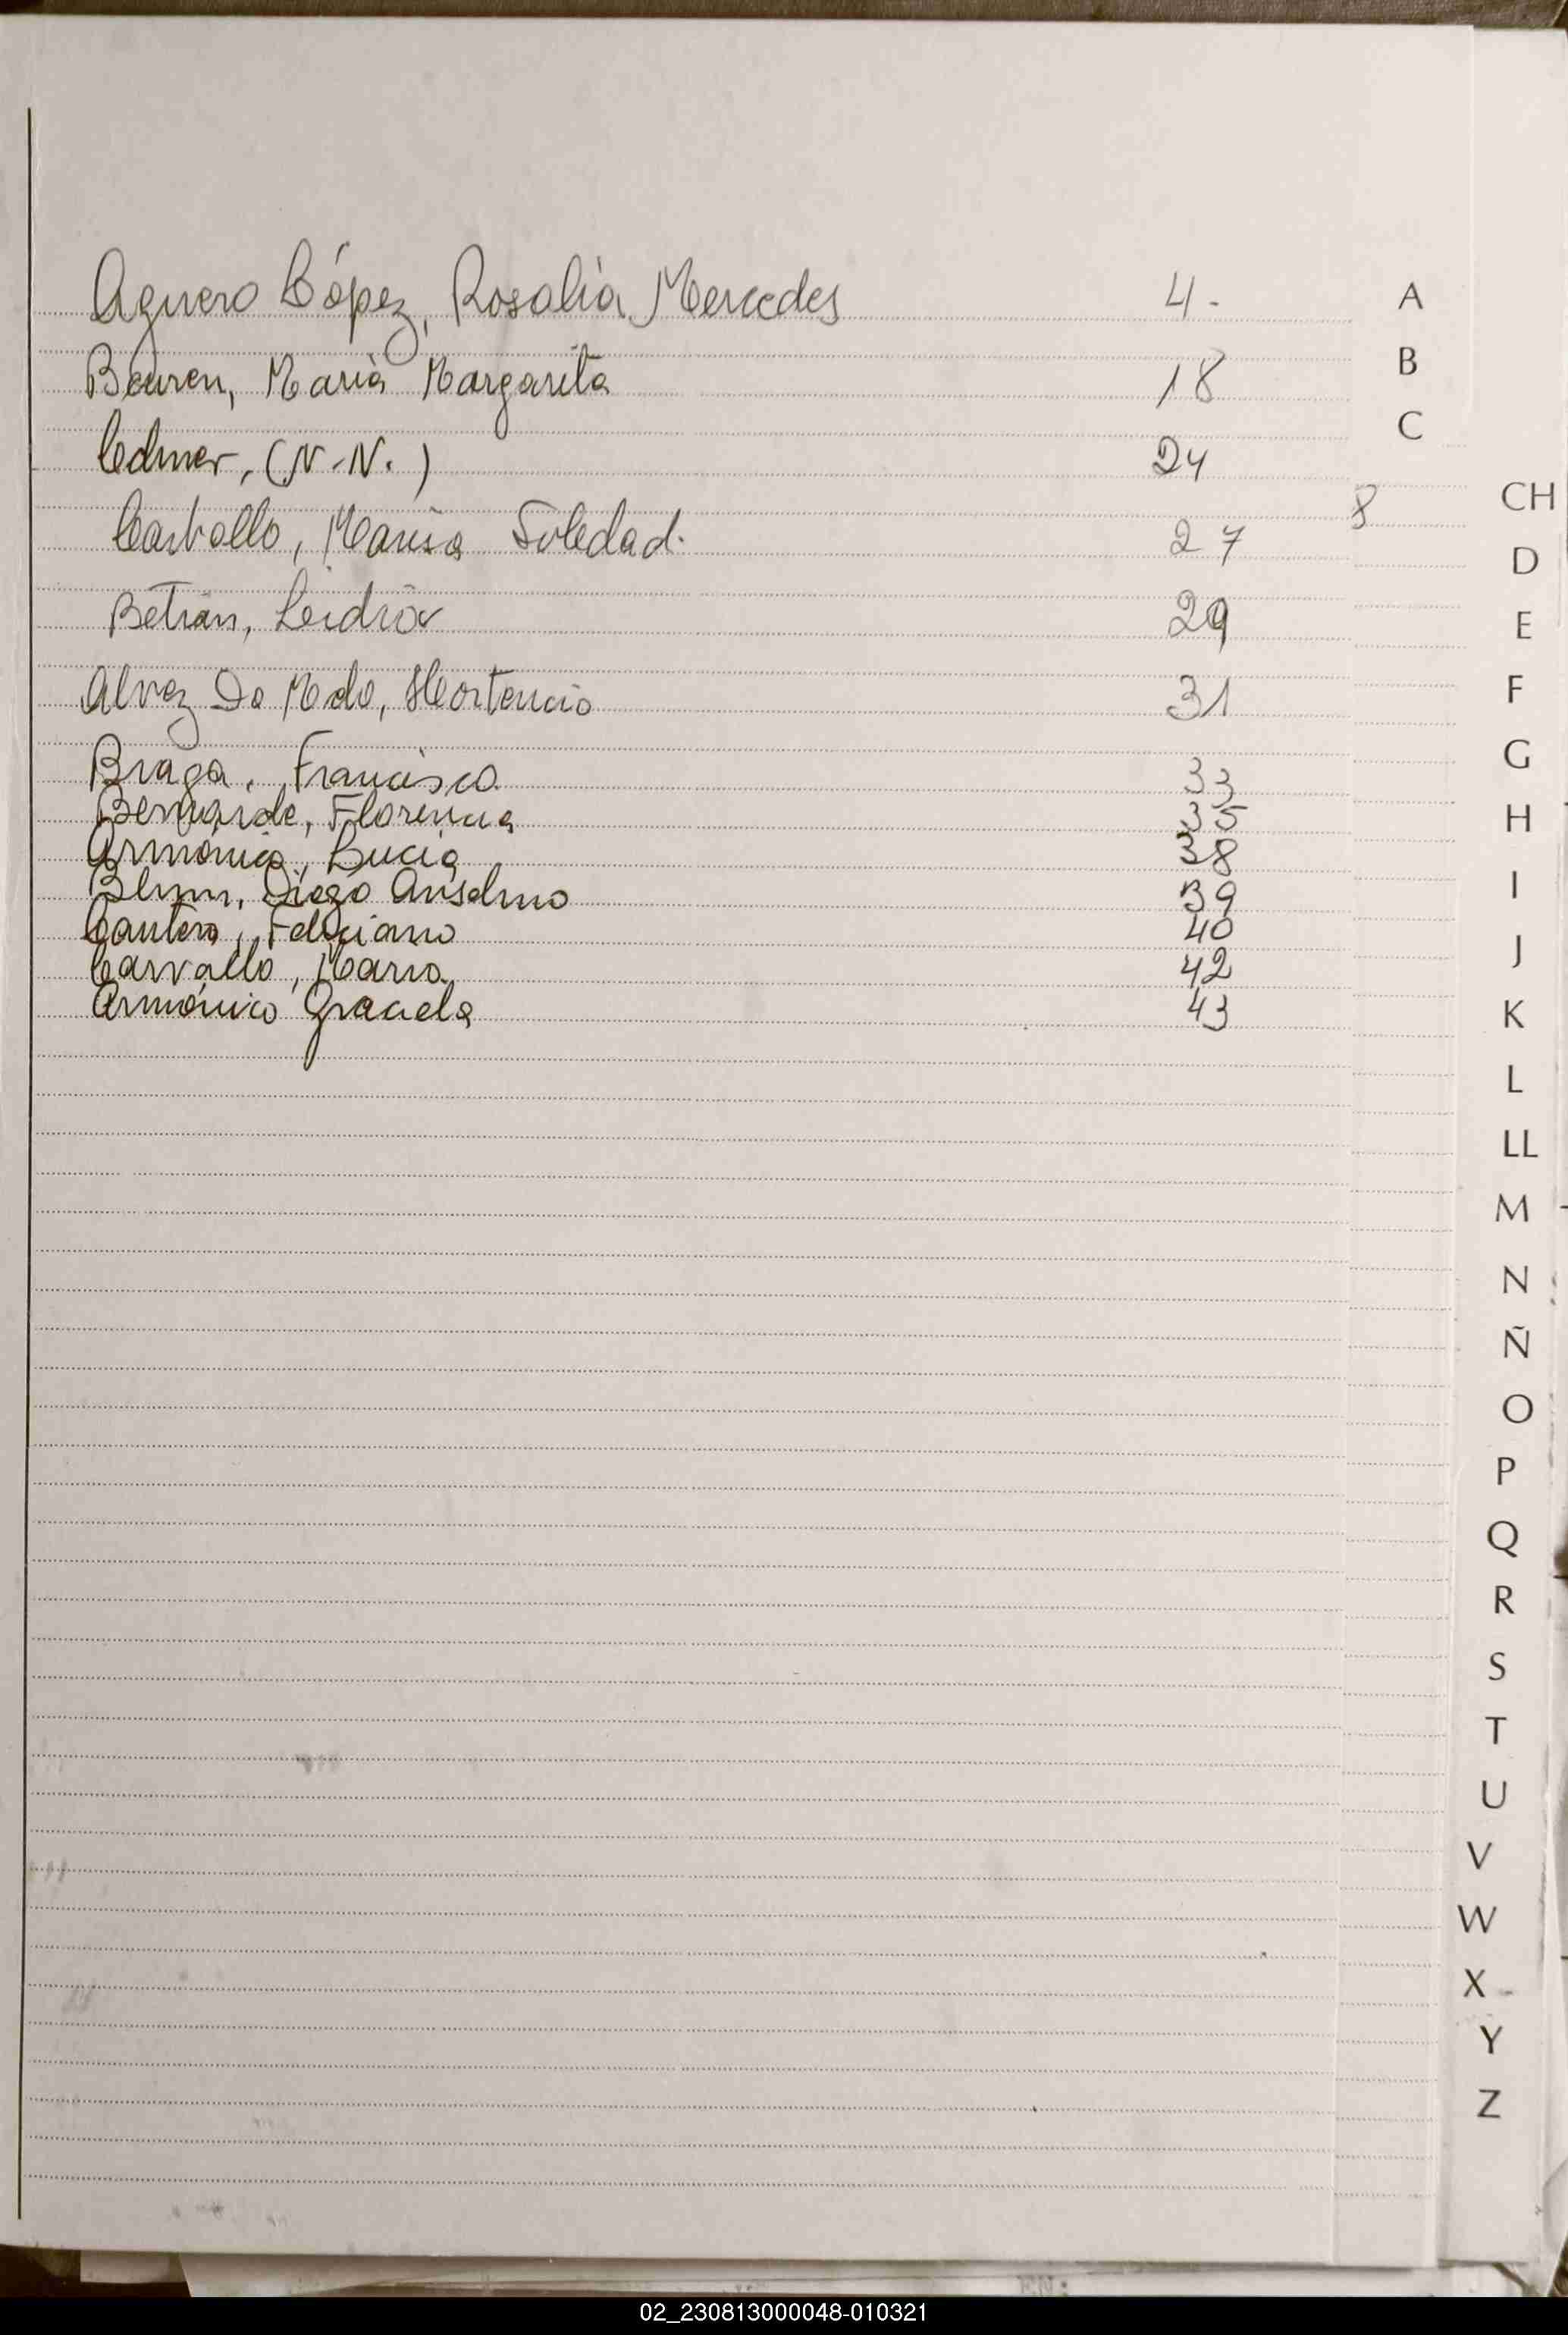 Aguero López, Rosalía Mercedes 4.
Beuren, María Margarita 18
(N.N.) 24
Carballo, Marisa Soledad. 27
Betrán, 29
Alvez De Melo, Hortencio 31
Braga, Francisco. 33
Bernarde, Florencia 35
Armónico, Lucia 38
Blum, Diego Anselmo 39
Cantero, Feliciano 40
Carvallo, Mario. 42
Armónico Graciela 43
8
A
B
C
CH
D
E
F
G
H
I
J
K
L
LL
M
N
Ñ
O
P
Q
R
S
T
U
V
W
X
Y
Z
02_230813000048-010321